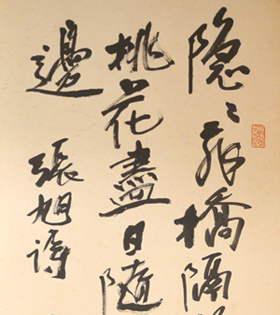 隐々飛橋隔
桃花盡日隨
邊
張旭詩